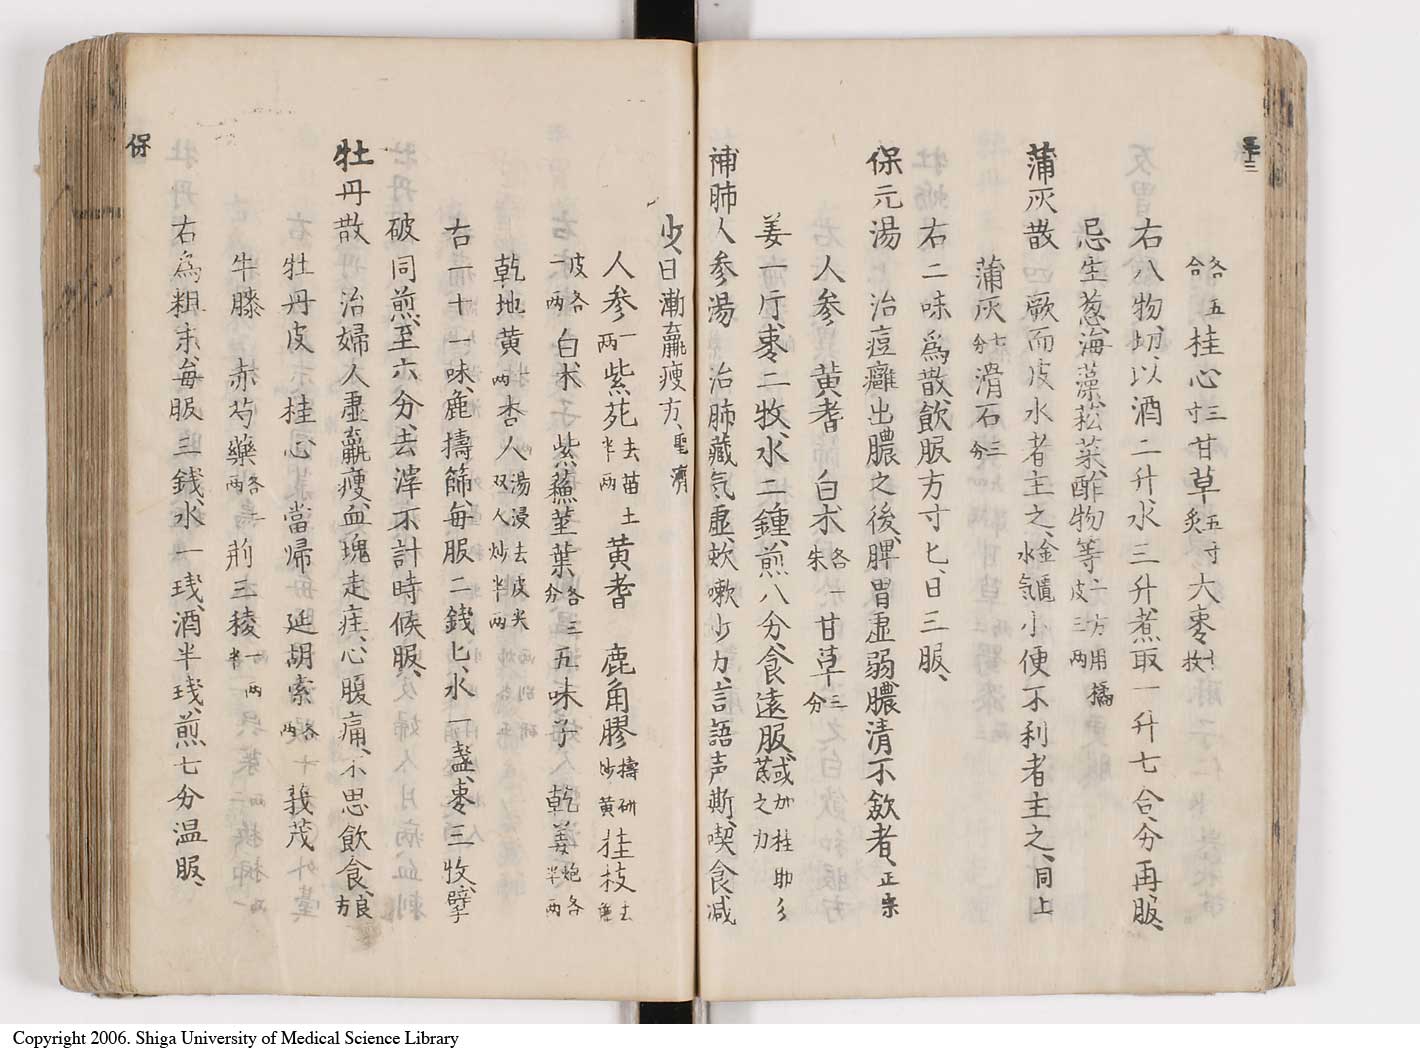 各五合桂心三寸甘草五寸炙大棗十枚
右八物切以酒二升水三升煮取一升七合分再服
忌生葱海藻菘菜酢物等一方用橘皮三両
蒲灰散 四厥而皮水者主之金匱水気小便不利者主之同上
蒲灰七分滑石三分
右二味為散飲服方寸匕日三服
保元湯 治痘癰出膿之後脾胃虚弱膿清不斂者正宗
人参 黄耆 白朮各一朱甘草三分
姜一斤棗二枚水二鍾煎八分食遠服或加桂助参蓍之力
補肺人参湯 治肺藏気虚欬嗽少力言語声嘶喫食減
少日漸羸瘦方聖済
人参一両紫苑去苗土半両黄耆 鹿角膠擣研炒黄桂枝去麁
皮各一両白朮 紫蘇莖葉各三分五味子 乾姜炮各半両
乾地黄両杏人湯浸去皮尖双人炒半両
右一十一味麁擣篩毎服二錢匕水一盞棗三枚擘
破同煎至六分去滓不計時候服
牡丹散 治婦人虚羸瘦血塊走疰心腹痛不思飲食良方
牡丹皮 桂心 當帰 延胡索各一両 莪茂
牛膝 赤芍藥各一両荊三稜一両半
右為粗末毎服三錢水一琖酒半琖煎七分温服
保